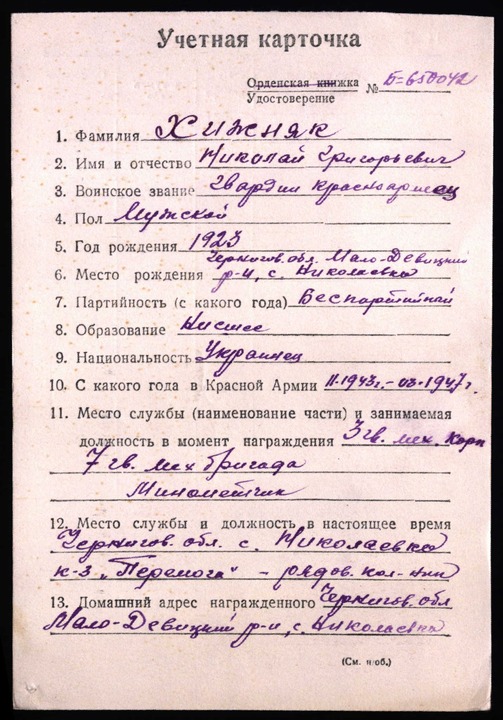 Учетная карточка
Орденская книжка
Удостоверение № Б-650042
1. Фамилия Хижняк
2. Имя и отчество Николай Григорьевич
3. Воинское звание Гвардии красноармеец
4. Пол Мужской
5. Год рождения 1923
Чернигов. обл. Мало-Девицкий
6. Место рождения р-н, с. Николаевка
7. Партийность (с какого года) Беспартийный
8. Образование Низшее
9. Национальность Украинец
10. С какого года в Красной Армии 11.1943г.-03-1947г.
11. Место службы (наименование части) и занимаемая
должность в момент награждения 3 гв. мех. корп
7 гв. мех бригада
Минометчик
12. Место службы и должность в настоящее время
Чернигов. обл. с. Николаевка
к-з „Перемога" - рядов. кол-ник
13. Домашний адрес награжденного Чернигов. обл
Мало-Девицкий р-н, с. Николаевка
(См. н/об.)